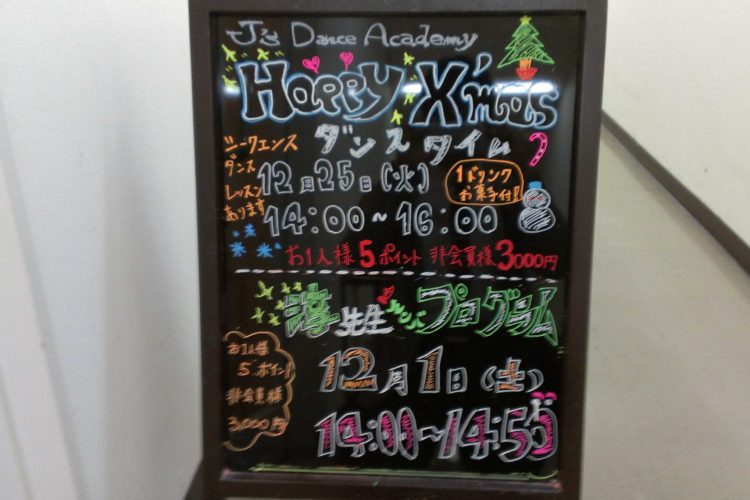 J's Dance Academy
Happy X'mas
ダンスタイム
シークエンス
ダンス
レッスン
あります
12月25日(火)
14:00~16:00
1ドリンク
お菓子付!!
お1人様 5ポイント 非会員様 3000円
淳先生 プログラム
12月1日(土)
14:00~14:50
お1人様
5ポイント
非会員様
3,000円